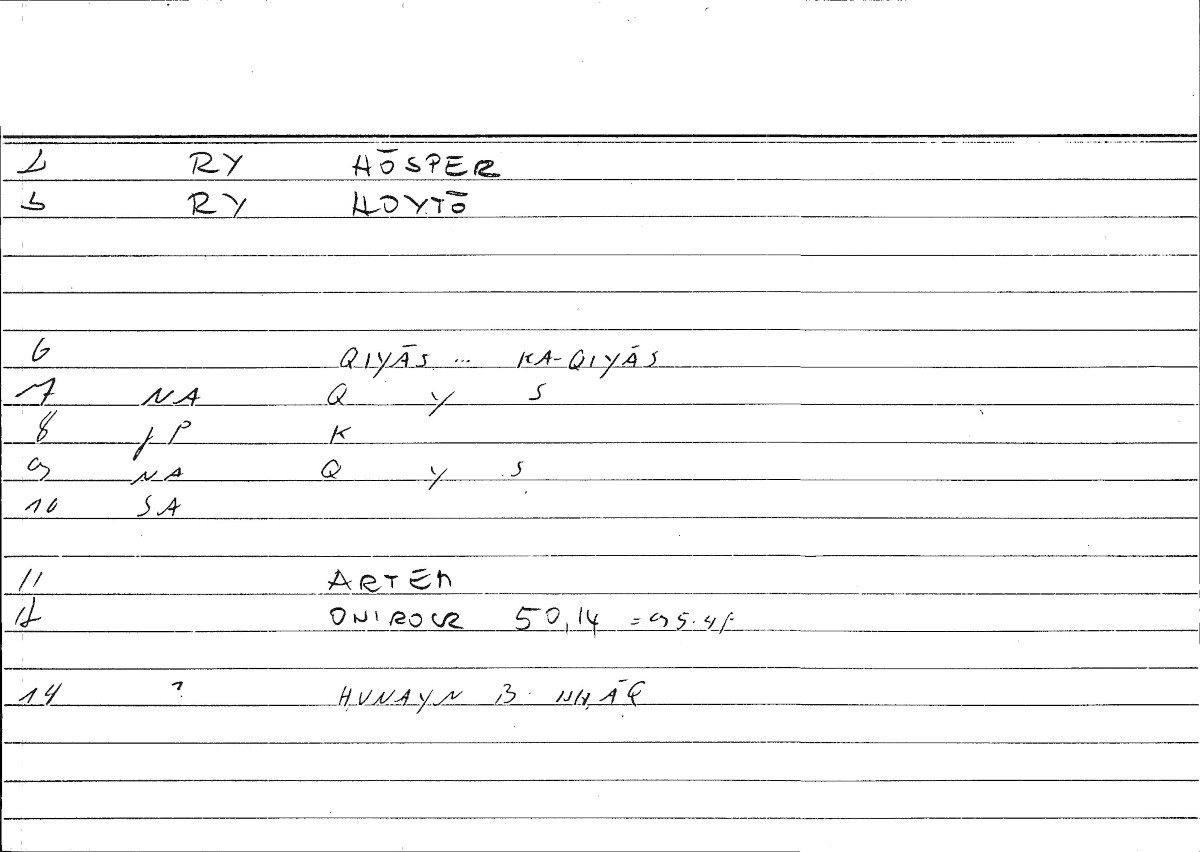 RY HŌSPER
5 RY HOYTŌ
6 QIYĀS ... KA-QIYĀS
7 NA Q Y S
8 K
9 NA Q Y S
10 SA
11 ARTEM
12 ONIROCR 50,14 =
14 ? ḤUNAYN B.